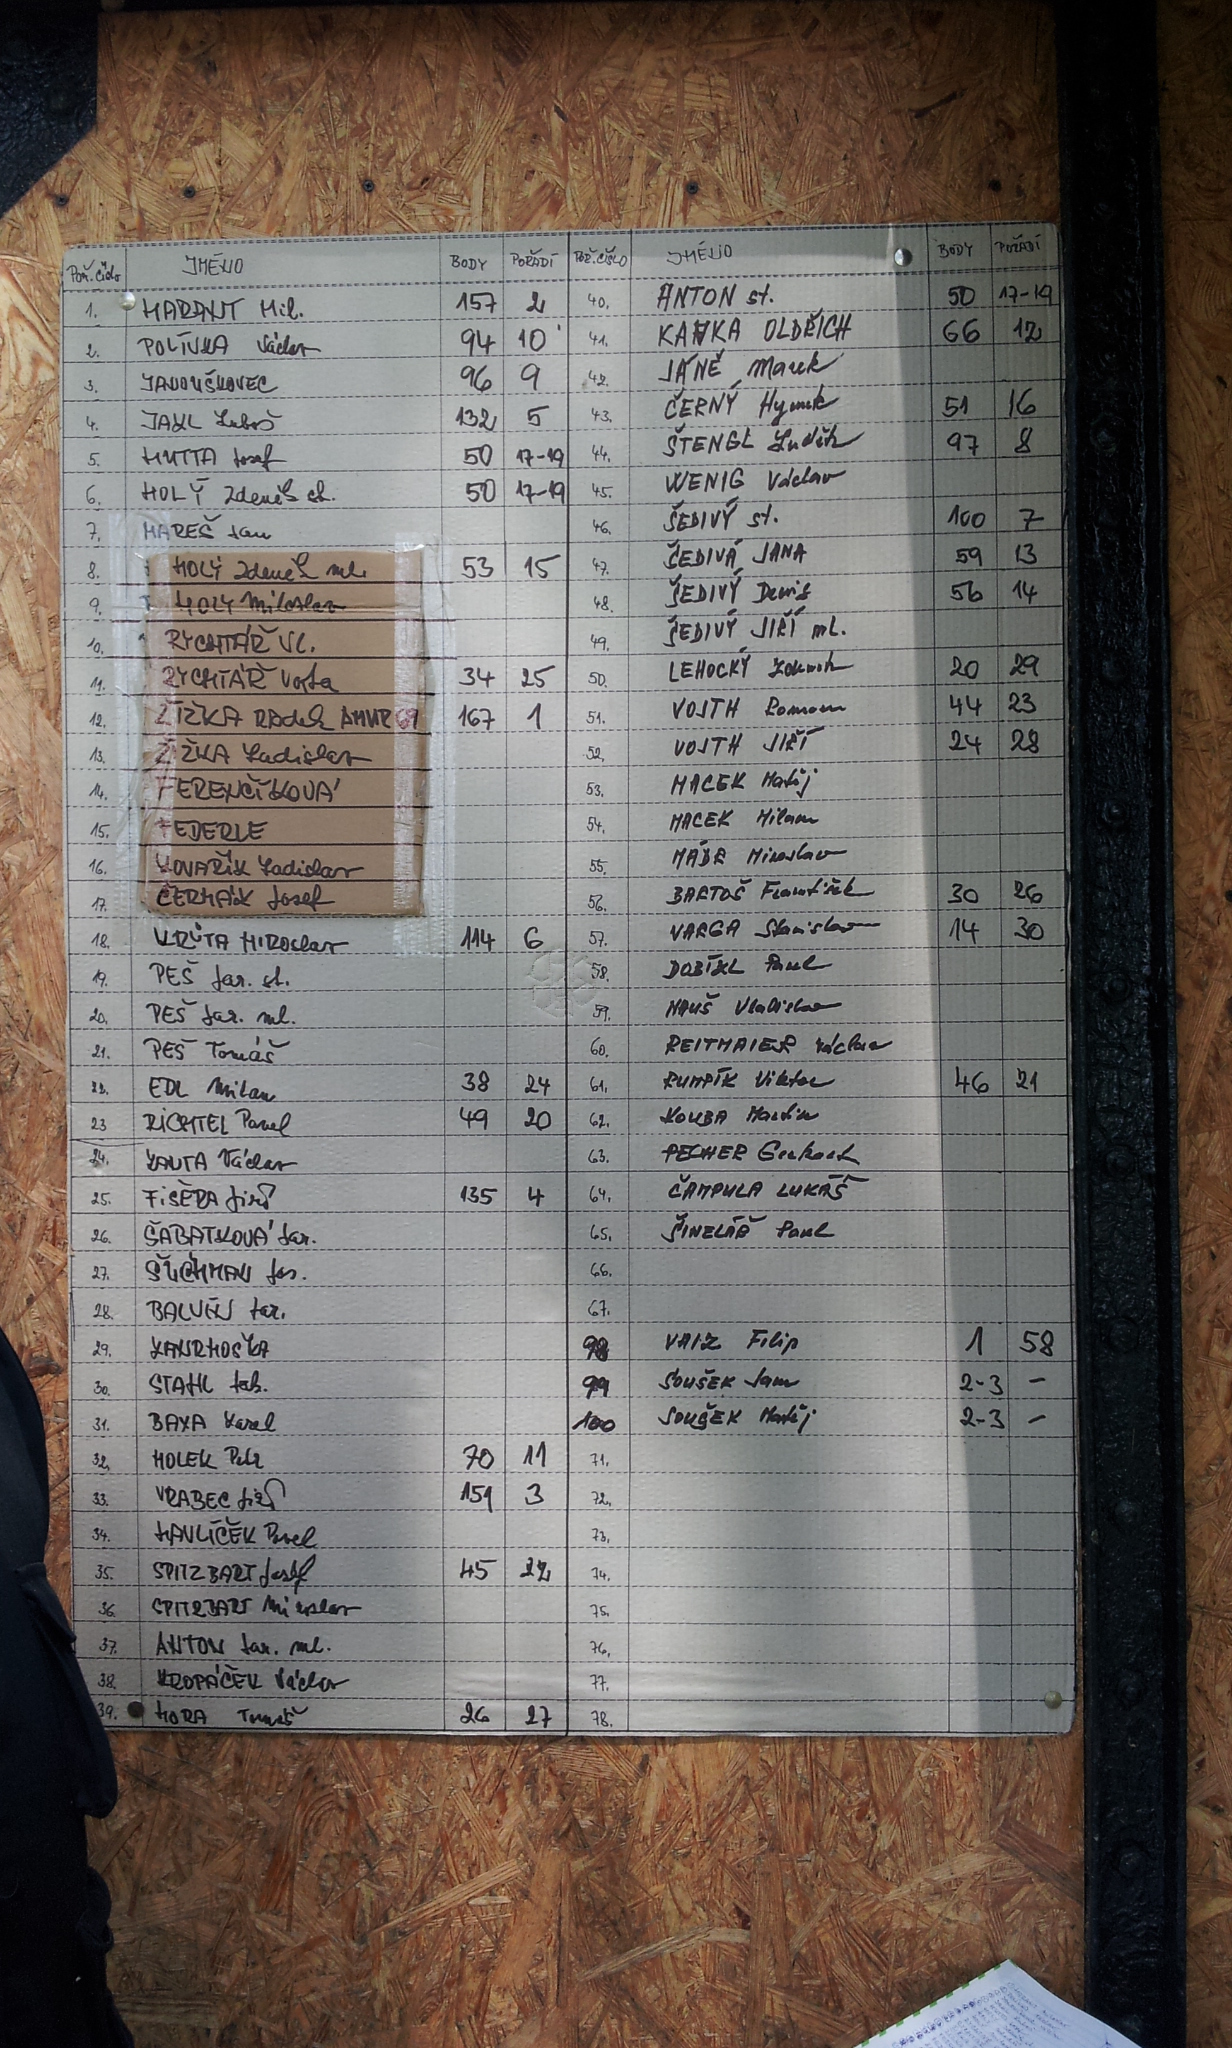 POŘ. číslo JMÉNO BODY POŘADÍ
1. MARAUT Mil. 157 2
2. POLÍVKA Václav 94 10
3. JANOUŠKOVEC 96 9
4. JAKL Luboš 132 5
5. HUTTA Josef 50 17-19
6. HOLÝ Zdeněk st. 50 17-19
7. MAREŠ Jan
8. HOLÝ Zdeněk ml. 53 15
9. HOLÝ Miloslav
10. RYCHTÁŘ Vl.
11. RYCHTÁŘ Vojta 34 25
12. ŽIŽKA RADEK 167 1
13. ŽIŽKA Ladislav
14. FERENČÍKOVÁ
15. FEDERLE
16. KOVAŘÍK Ladislav
17. ČERMÁK Josef
18. KRŮTA MIROslav 114 6
19. PEŠ Jar. st.
20. PEŠ Jar. ml.
21. PEŠ Tomáš
22. EDL Milan 38 24
23 RICHTEL Pavel 49 20
24. KAUTA Václav
25. FIŠERA Jiří 135 4
26. ŠABATKOVÁ Jar.
27. ŠUCHMAN Jos.
28. BALVÍN Jar.
29.
30. STAHL Jak.
31. BAXA Karel
32. HOLEK Petr 70 11
33. VRABEC Jiří 151 3
34. HAVLÍČEK Pavel
35. SPITZBART Josef 45 22
36. SPITZBART Miroslav
37. ANTON Jar. ml.
38. KROPÁČEK Václav
39. HORA Tomáš 26 27
POŘ. ČÍSLO JMÉNO BODY POŘADÍ
40. ANTON st. 50 17-19
41. KAŇKA OLDŘICH 66 12
42. JÁNĚ Marek
43. ČERNÝ Hynek 51 16
44. ŠTENGL Luděk 97 8
45. WENIG Václav
46. ŠEDIVÝ st. 100 7
47. ŠEDIVÁ JANA 59 13
48. ŠEDIVÝ Denis 56 14
49. ŠEDIVÝ JIŘÍ ml.
50. LEHOCKÝ 20 29
51. VOJTH Roman 44 23
52. VOJTH JIŘÍ 24 28
53. MACEK Matěj
54. MACEK Milan
55. Miroslav
56. BARTOŠ František 30 26
57. VARGA Stanislav 14 30
58. Pavel
59. Vladislav
60. REITMAIER Václav
61. RUMPÍK Viktor 46 21
62. KOUBA Martin
63. PECHER
64. ČAMPULA LUKÁŠ
65. ŠINELÁŘ Pavel
66.
67.
98 VAIZ Filip 1 58
99 SOUŠEK Jan 2-3 -
100 SOUŠEK Matěj 2-3 -
71.
72.
73.
74.
75.
76.
77.
78.